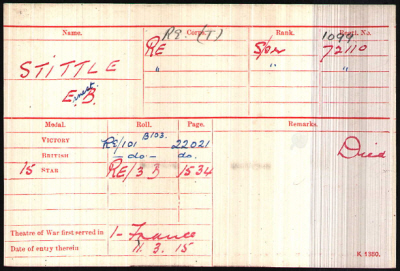 Name. Corps. Rank. Regtl. No.
RE (T) 1099
STITTLE RE Spr 72110
Ernest B. " " "
Medal. Roll. Page. Remarks.
VICTORY RE/101 B103. 22021
BRITISH - do - do. Died
15 STAR RE/3 B 1534
Theatre of War first served in 1 - France
Date of entry therein 11. 3. 15
K 1380.